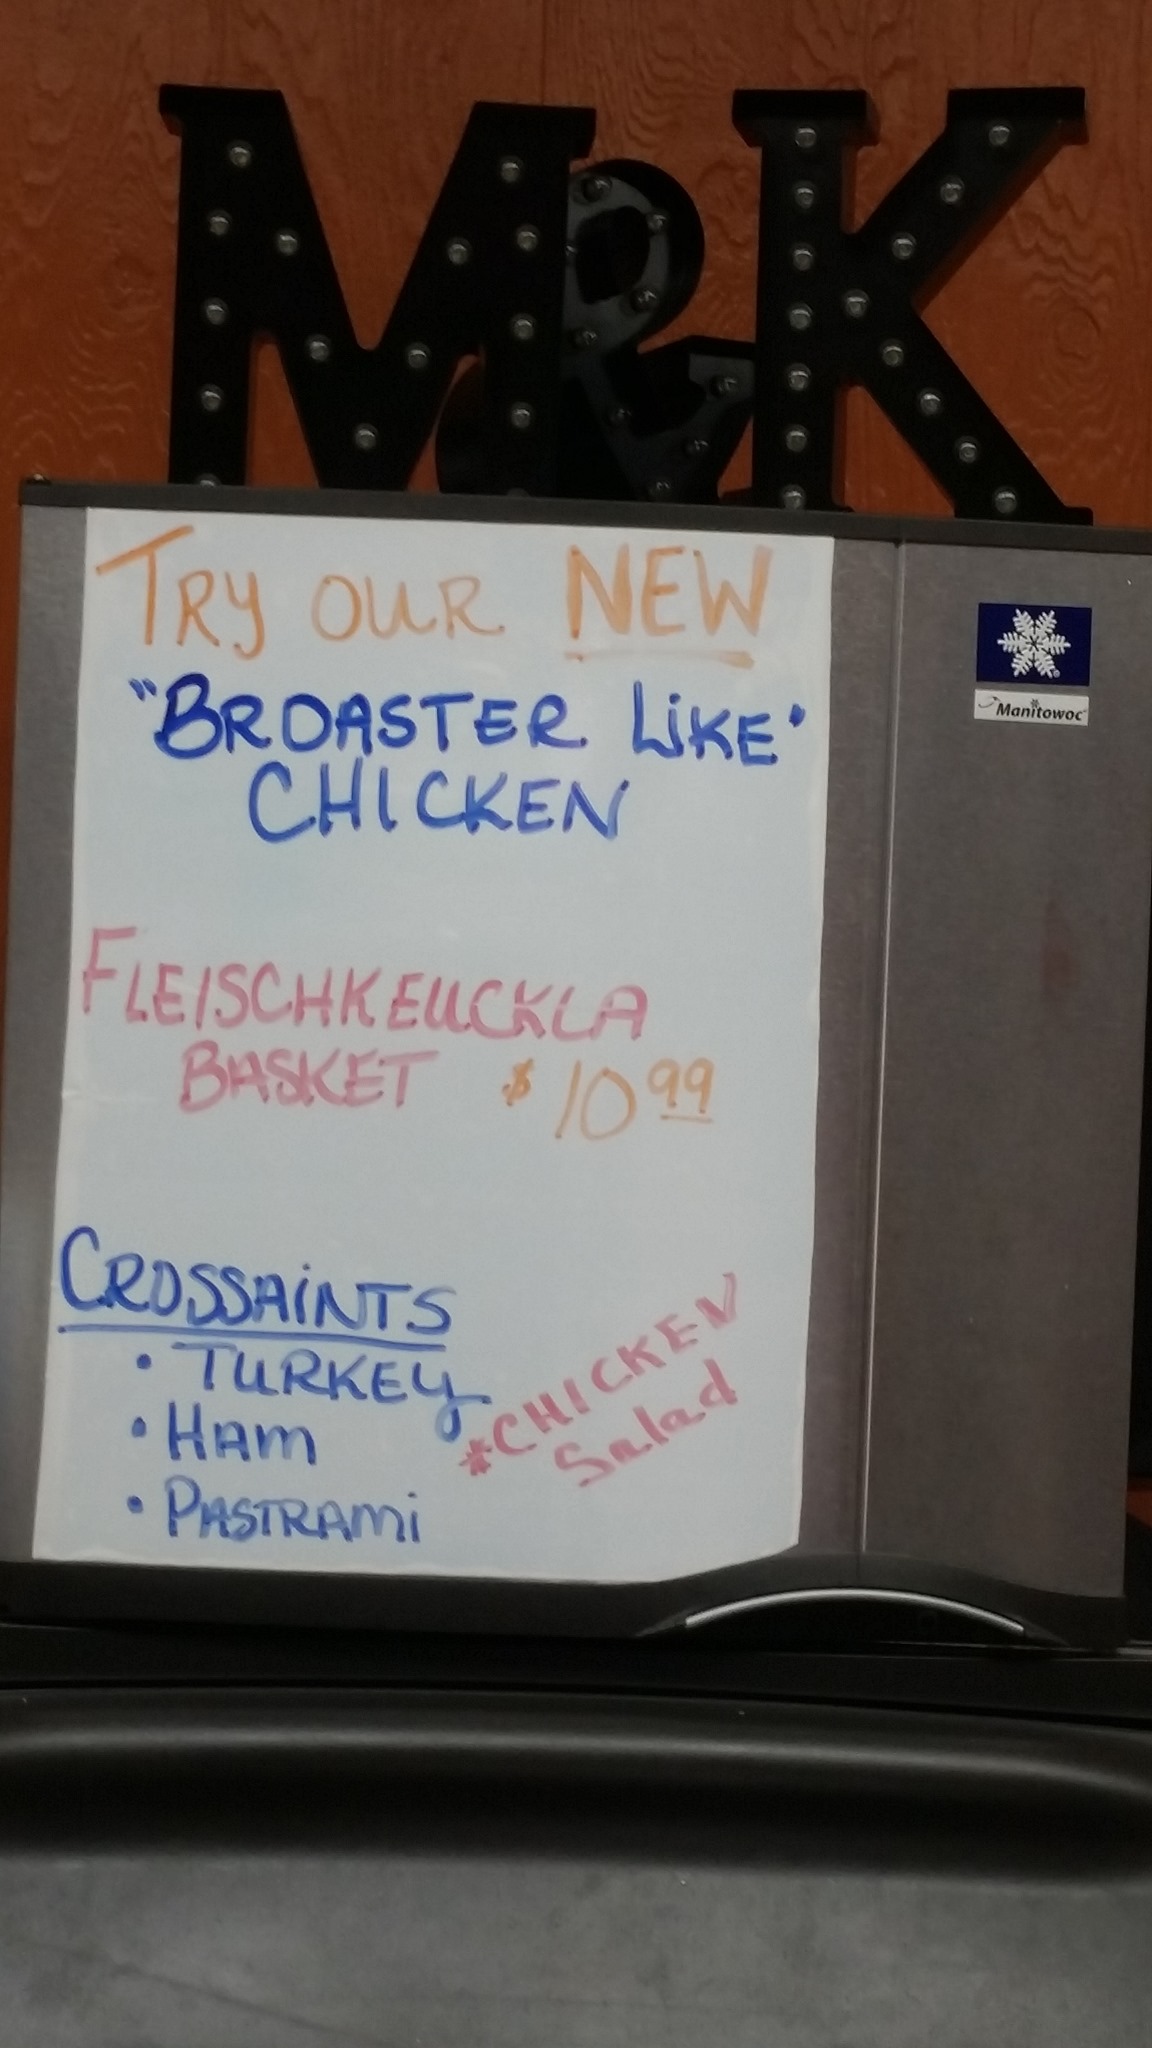 M&K
TRY OUR NEW
"BROASTER LIKE"
CHICKEN
FLEISCHKEUCKLA
BASKET $10.99
CROSSAINTS
• TURKEY
• HAM
• PASTRAMI
*CHICKEN
Salad
Manitowoc